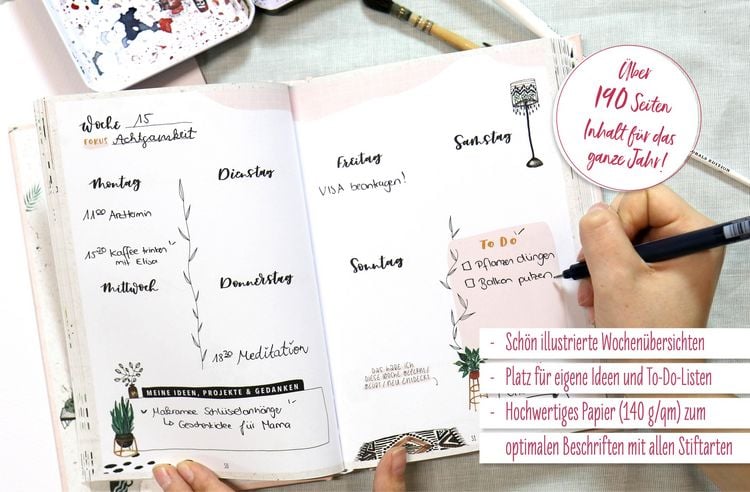 Woche 15
FOKUS Achtsamkeit
Montag
11⁰⁰ Arzttermin
15³⁰ Kaffee trinken
mit Elisa
Dienstag
Mittwoch
Donnerstag
18³⁰ Meditation
MEINE IDEEN, PROJEKTE & GEDANKEN
Makramee Schlüsselanhänger
↳ Geschenkidee für Mama
58
Freitag
VISA beantragen!
Samstag
Sonntag
To Do
Pflanzen düngen
Balkon putzen
DAS HABE ICH
DIESE WOCHE
NEU ENTDECKT
59
Über
190 Seiten
Inhalt für das
ganze Jahr!
EDITION
- Schön illustrierte Wochenübersichten
- Platz für eigene Ideen und To-Do-Listen
- Hochwertiges Papier (140 g/qm) zum
optimalen Beschriften mit allen Stiftarten